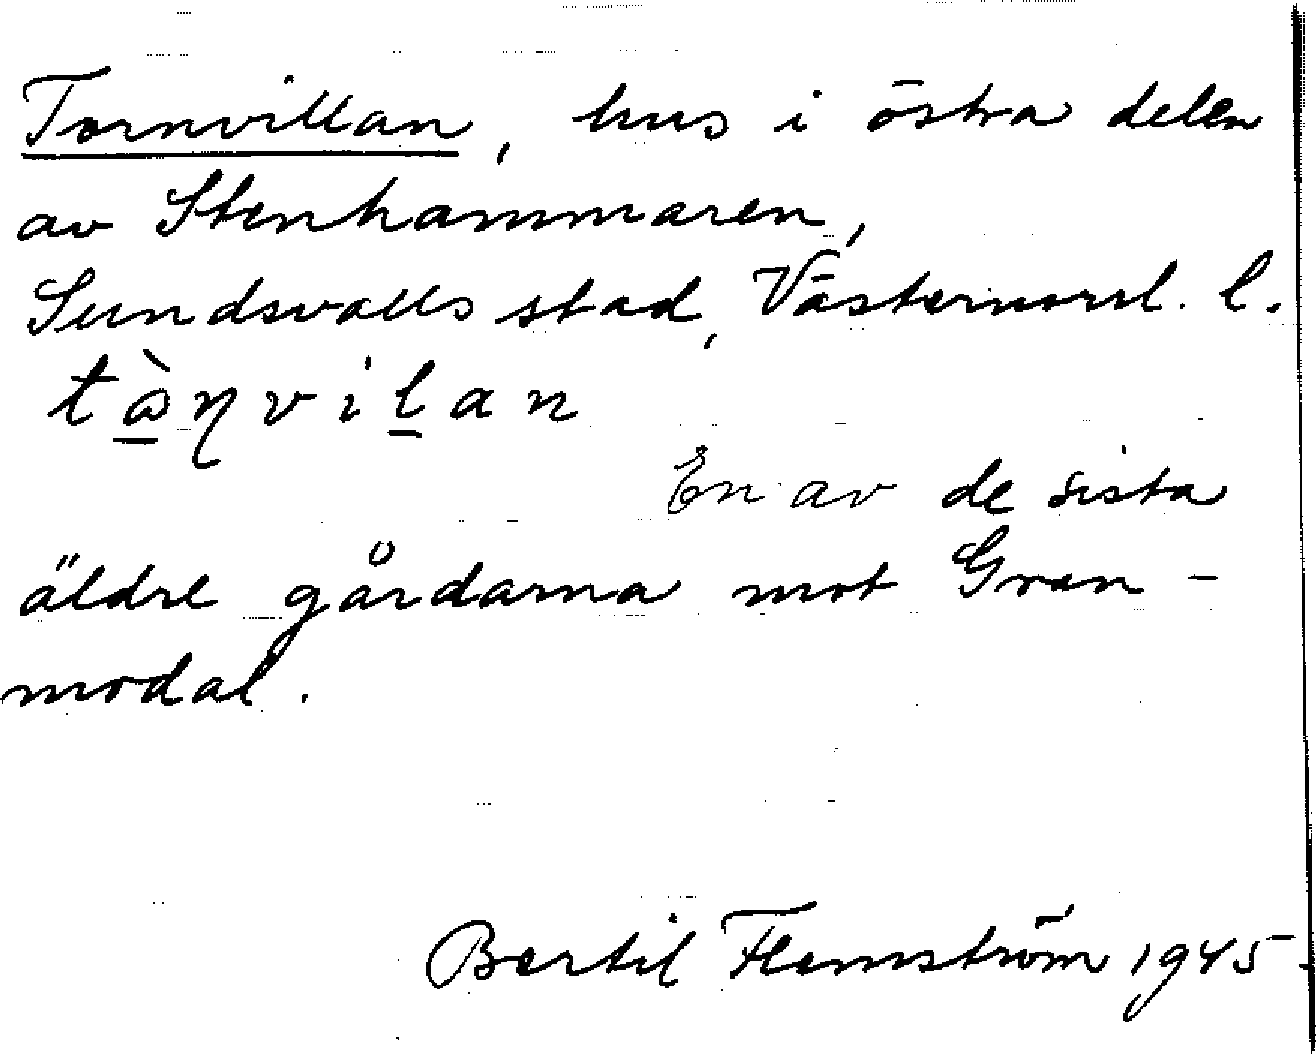 Tornvillan, hus i östra delen
av Stenhammaren,
Sundsvalls stad, Västernorrl. l.
En av de sista
äldre gårdarna mot Gran-
modal.
Bertil Flemström 1945